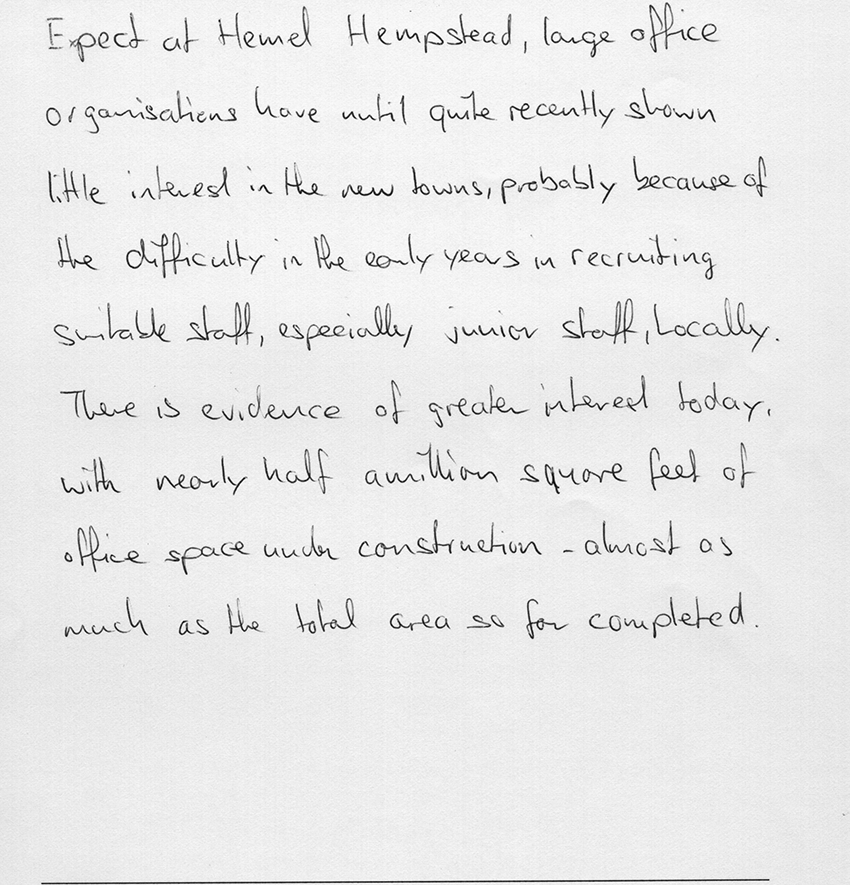 Expect at Hemel Hempstead, large office
organisations have until quite recently shown
little interest in the new towns, probably because of
the difficulty in the early years in recruiting
suitable staff, especially junior staff, Locally.
There is evidence of greater interest today,
with nearly half a million square feet of
office space under construction - almost as
much as the total area so far completed.